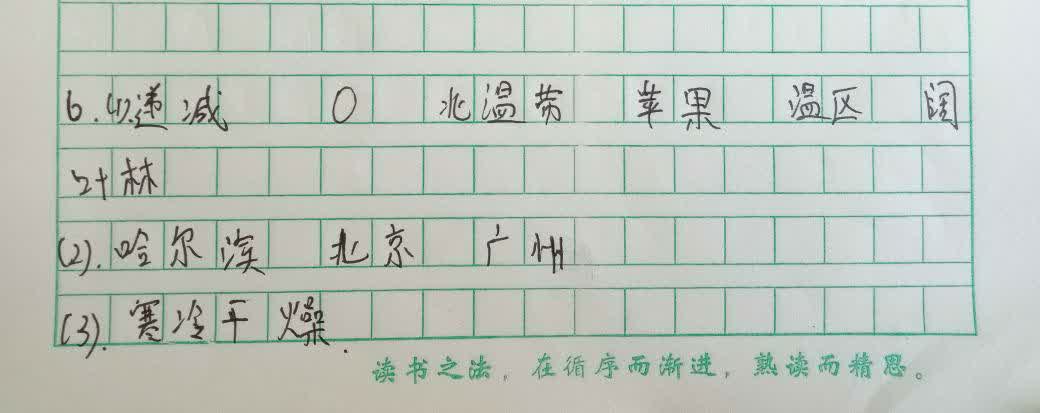 6.(1).递减 0 北温带 苹果 温区 阔
叶林
(2).哈尔滨 北京 广州
(3).寒冷干燥.
读书之法，在循序而渐进，熟读而精思。